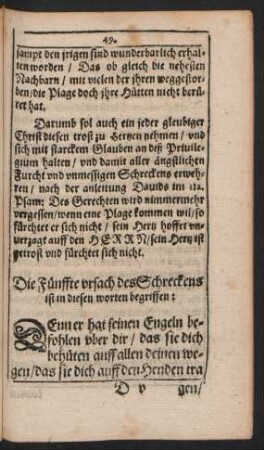 49.
sampt den jrigen sind wunderbarlich erhal-
ten worden / Das ob gleich die nehesten
Nachbarn / mit vielen der jhren weggestor-
ben / die Plage doch jhre Hütten nicht berü-
ret hat.
Darumb sol auch ein jeder gleubiger
Christ diesen trost zu Hertzen nehmen / vnd
sich mit starckem Glauben an diß Priuile-
gium halten / vnd damit aller ängstlichen
Furcht vnd vnmessigen Schreckens erweh-
ren / nach der anleitung Dauids im 112.
Psam: Des Gerechten wird nimmermehr
vergessen / wenn eine Plage kommen wil / so
fürchtet er sich nicht / sein Hertz hoffet vn-
uerzagt auff den HERRN / sein Hertz ist
getrost vnd fürchtet sich nicht.
Die Fünffte vrsach des Schreckens
ist in diesen worten begriffen:
DEnn er hat seinen Engeln be-
fohlen vber dir / das sie dich
behüten auff allen deinen we-
gen / das sie dich auff den Henden tra
D v gen /